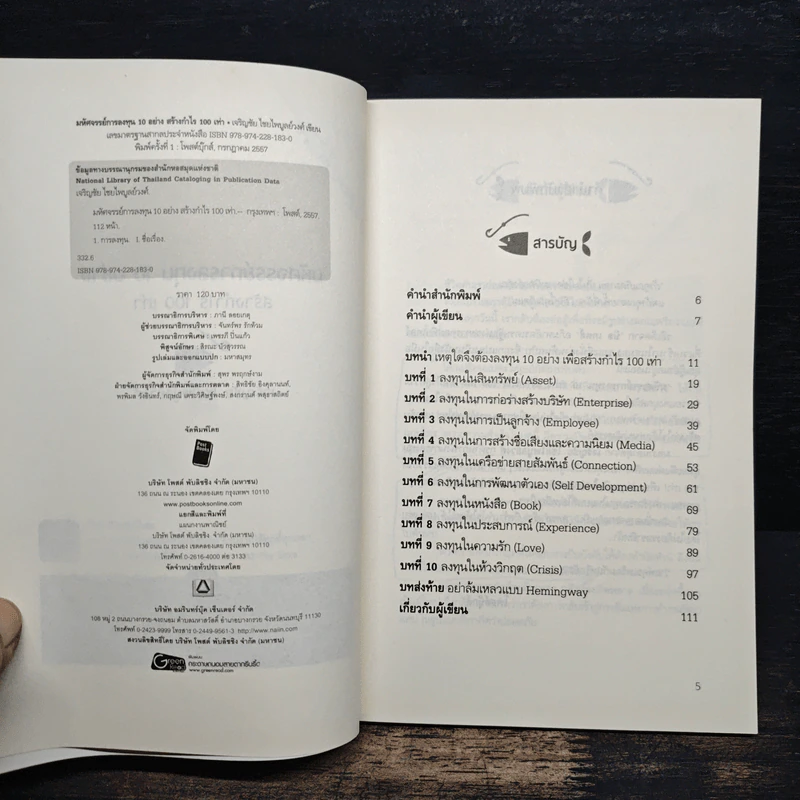 มหัศจรรย์การลงทุน 10 อย่าง สร้างกำไร 100 เท่า • เจริญชัย ไชยไพบูลย์วงศ์ เขียน
เลขมาตรฐานสากลประจำหนังสือ ISBN 978-974-228-183-0
พิมพ์ครั้งที่ 1 : โพสต์บุ๊กส์, กรกฎาคม 2557
ข้อมูลทางบรรณานุกรมของสำนักหอสมุดแห่งชาติ
National Library of Thailand Cataloging in Publication Data
เจริญชัย ไชยไพบูลย์วงศ์.
มหัศจรรย์การลงทุน 10 อย่าง สร้างกำไร 100 เท่า.-- กรุงเทพฯ : โพสต์, 2557.
112 หน้า.
1. การลงทุน. I. ชื่อเรื่อง.
332.6
ISBN 978-974-228-183-0
ราคา 120 บาท
บรรณาธิการบริหาร : ภานี ลอยเกตุ
ผู้ช่วยบรรณาธิการบริหาร : จันทร์พร รักท้วม
บรรณาธิการพิเศษ : เพชรภี ปิ่นแก้ว
พิสูจน์อักษร : สิรณะ บัวสุวรรณ
รูปเล่มและออกแบบปก : มหาสมุทร
ผู้จัดการธุรกิจสำนักพิมพ์ : สุพร พฤกษ์งาม
ฝ่ายจัดการธุรกิจสำนักพิมพ์และการตลาด : สิทธิชัย อิงคุลานนท์,
พรพิมล วังสินธ์, กฤษณี เดชะวิศิษฐ์พงษ์, สงกรานต์ พสุธาสถิตย์
จัดพิมพ์โดย
Post Books
บริษัท โพสต์ พับลิชชิง จำกัด (มหาชน)
136 ถนน ณ ระนอง เขตคลองเตย กรุงเทพฯ 10110
www.postbooksonline.com
แยกสีและพิมพ์ที่
แผนกงานพาณิชย์
บริษัท โพสต์ พับลิชชิง จำกัด (มหาชน)
136 ถนน ณ ระนอง เขตคลองเตย กรุงเทพฯ 10110
โทรศัพท์ 0-2616-4000 ต่อ 3133
จัดจำหน่ายทั่วประเทศโดย
บริษัท อมรินทร์บุ๊ค เซ็นเตอร์ จำกัด
108 หมู่ 2 ถนนบางกรวย-จงถนอม ตำบลมหาสวัสดิ์ อำเภอบางกรวย จังหวัดนนทบุรี 11130
โทรศัพท์ 0-2423-9999 โทรสาร 0-2449-9561-3 http://www.naiin.com
สงวนลิขสิทธิ์โดย บริษัท โพสต์ พับลิชชิง จำกัด (มหาชน)
Green Read
พิมพ์บน
กระดาษถนอมสายตากรีนรี้ด
www.greenread.com
สารบัญ
คำนำสำนักพิมพ์ 6
คำนำผู้เขียน 7
บทนำ เหตุใดจึงต้องลงทุน 10 อย่าง เพื่อสร้างกำไร 100 เท่า 11
บทที่ 1 ลงทุนในสินทรัพย์ (Asset) 19
บทที่ 2 ลงทุนในการก่อร่างสร้างบริษัท (Enterprise) 29
บทที่ 3 ลงทุนในการเป็นลูกจ้าง (Employee) 39
บทที่ 4 ลงทุนในการสร้างชื่อเสียงและความนิยม (Media) 45
บทที่ 5 ลงทุนในเครือข่ายสายสัมพันธ์ (Connection) 53
บทที่ 6 ลงทุนในการพัฒนาตัวเอง (Self Development) 61
บทที่ 7 ลงทุนในหนังสือ (Book) 69
บทที่ 8 ลงทุนในประสบการณ์ (Experience) 79
บทที่ 9 ลงทุนในความรัก (Love) 89
บทที่ 10 ลงทุนในห้วงวิกฤต (Crisis) 97
บทส่งท้าย อย่าล้มเหลวแบบ Hemingway 105
เกี่ยวกับผู้เขียน 111
5